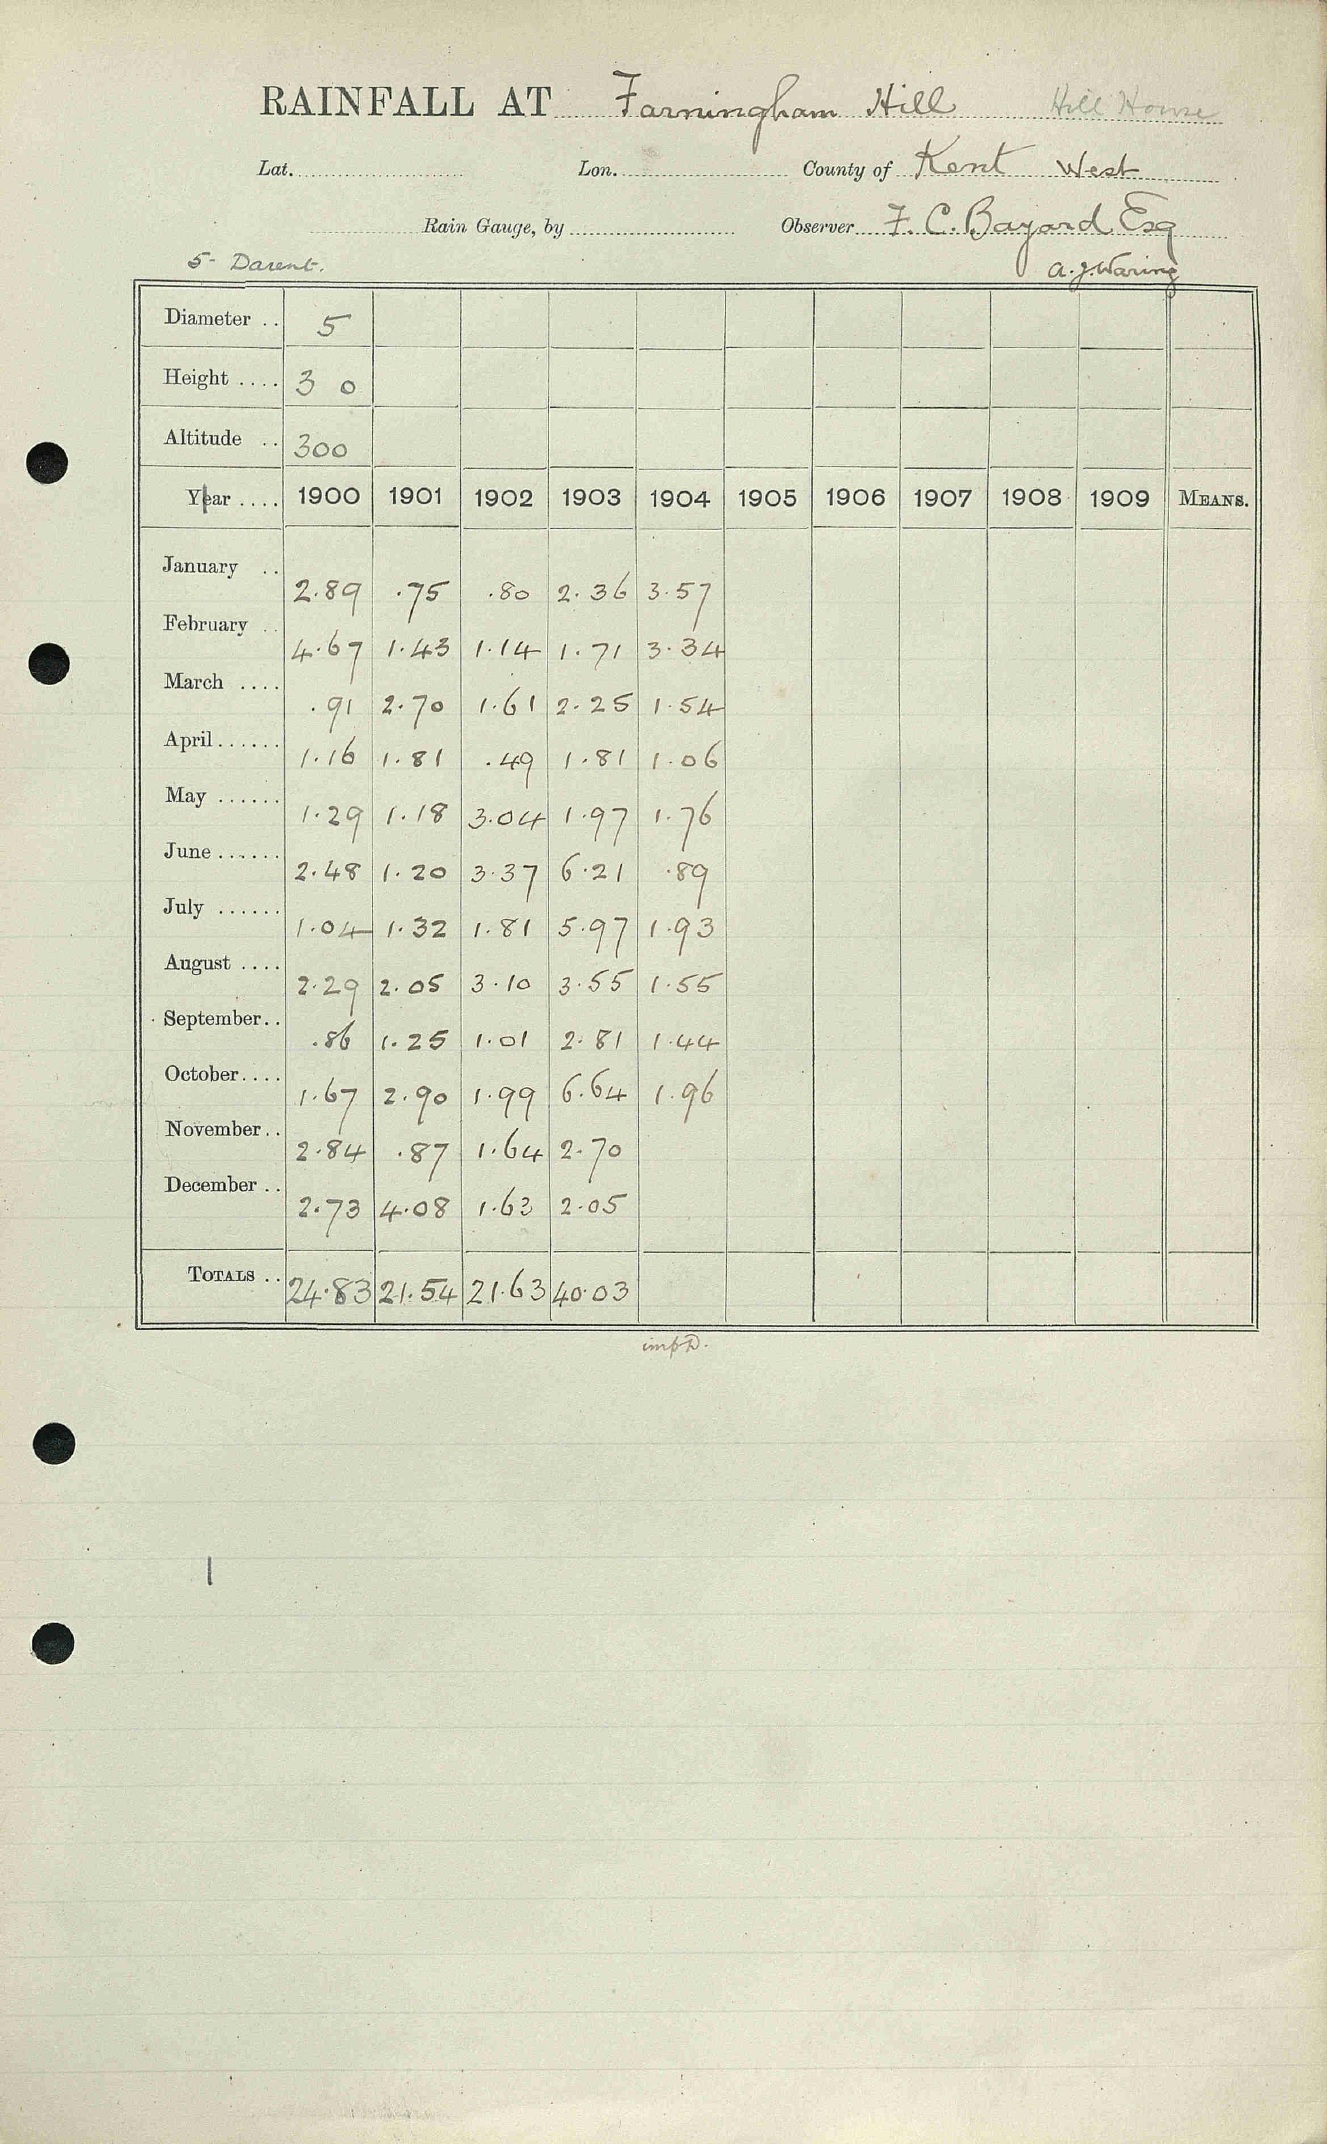 RAINFALL AT Farningham Hill Hill House
Lat. Lon. County of Kent West
Rain Gauge, by Observer F. C. Bayard Esq
5- Darent. A. J. Waring
Diameter .. 5
Height .... 3 0
Altitude .. 300
Year .... 1900 1901 1902 1903 1904 1905 1906 1907 1908 1909 MEANS.
January .. 2.89 .75 .80 2.36 3.57
February .. 4.67 1.43 1.14 1.71 3.34
March .... .91 2.70 1.61 2.25 1.54
April ...... 1.16 1.81 .49 1.81 1.06
May ...... 1.29 1.18 3.04 1.97 1.76
June ...... 2.48 1.20 3.37 6.21 .89
July ...... 1.04 1.32 1.81 5.97 1.93
August .... 2.29 2.05 3.10 3.55 1.55
September.. .86 1.25 1.01 2.81 1.44
October.... 1.67 2.90 1.99 6.64 1.96
November.. 2.84 .87 1.64 2.70
December .. 2.73 4.08 1.63 2.05
TOTALS .. 24.83 21.54 21.63 40.03